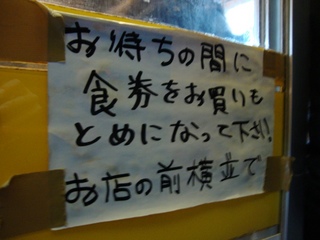 お待ちの間に
食券をお買いも
とめになって下さい!
お店の前横並で